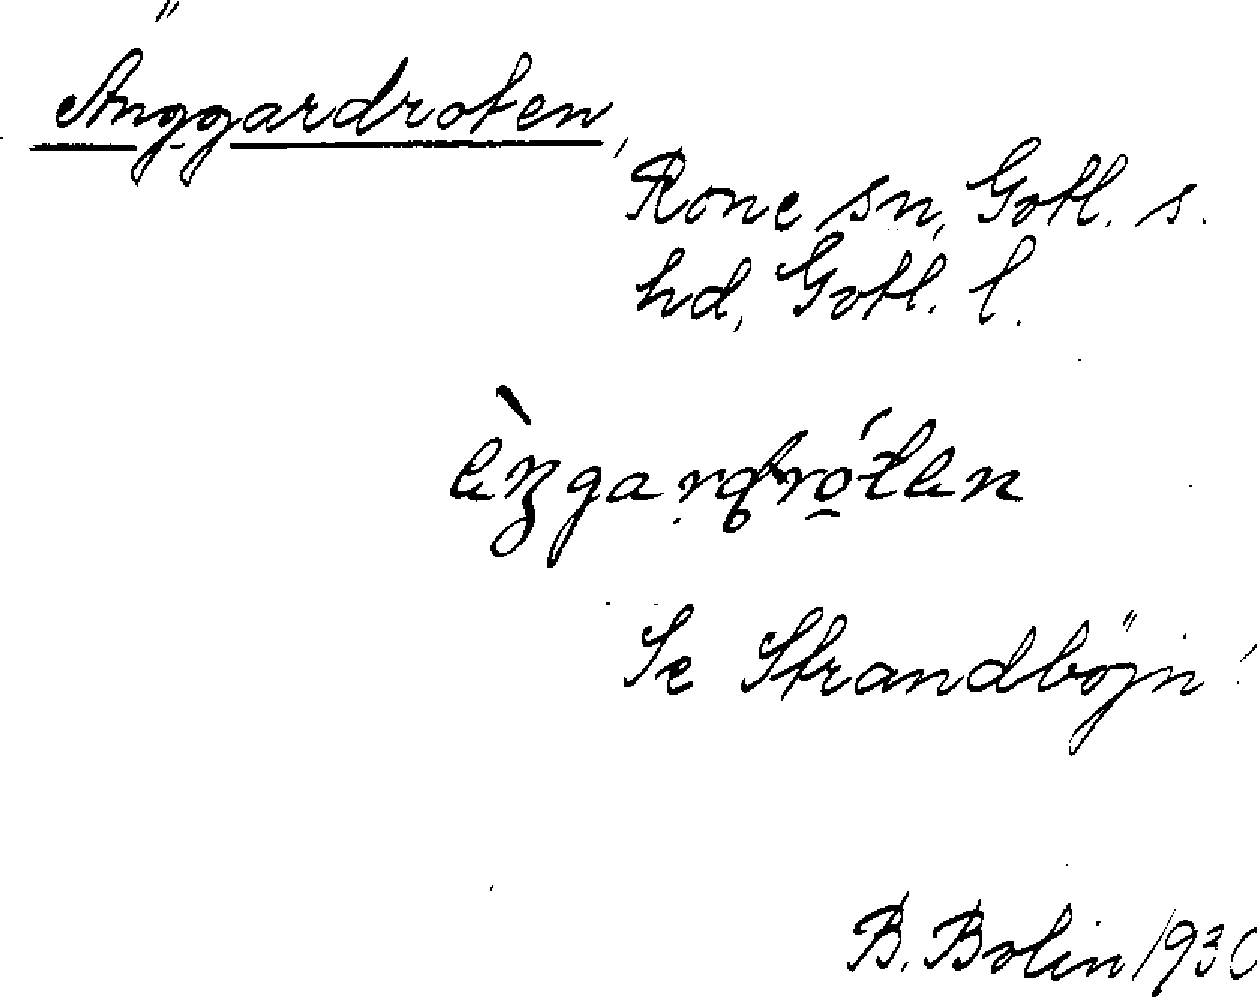 Änggardroten,
Rone sn, Gotl. s.
hd, Gotl. l.
Se Strandböjn!
B. Bolin 1930